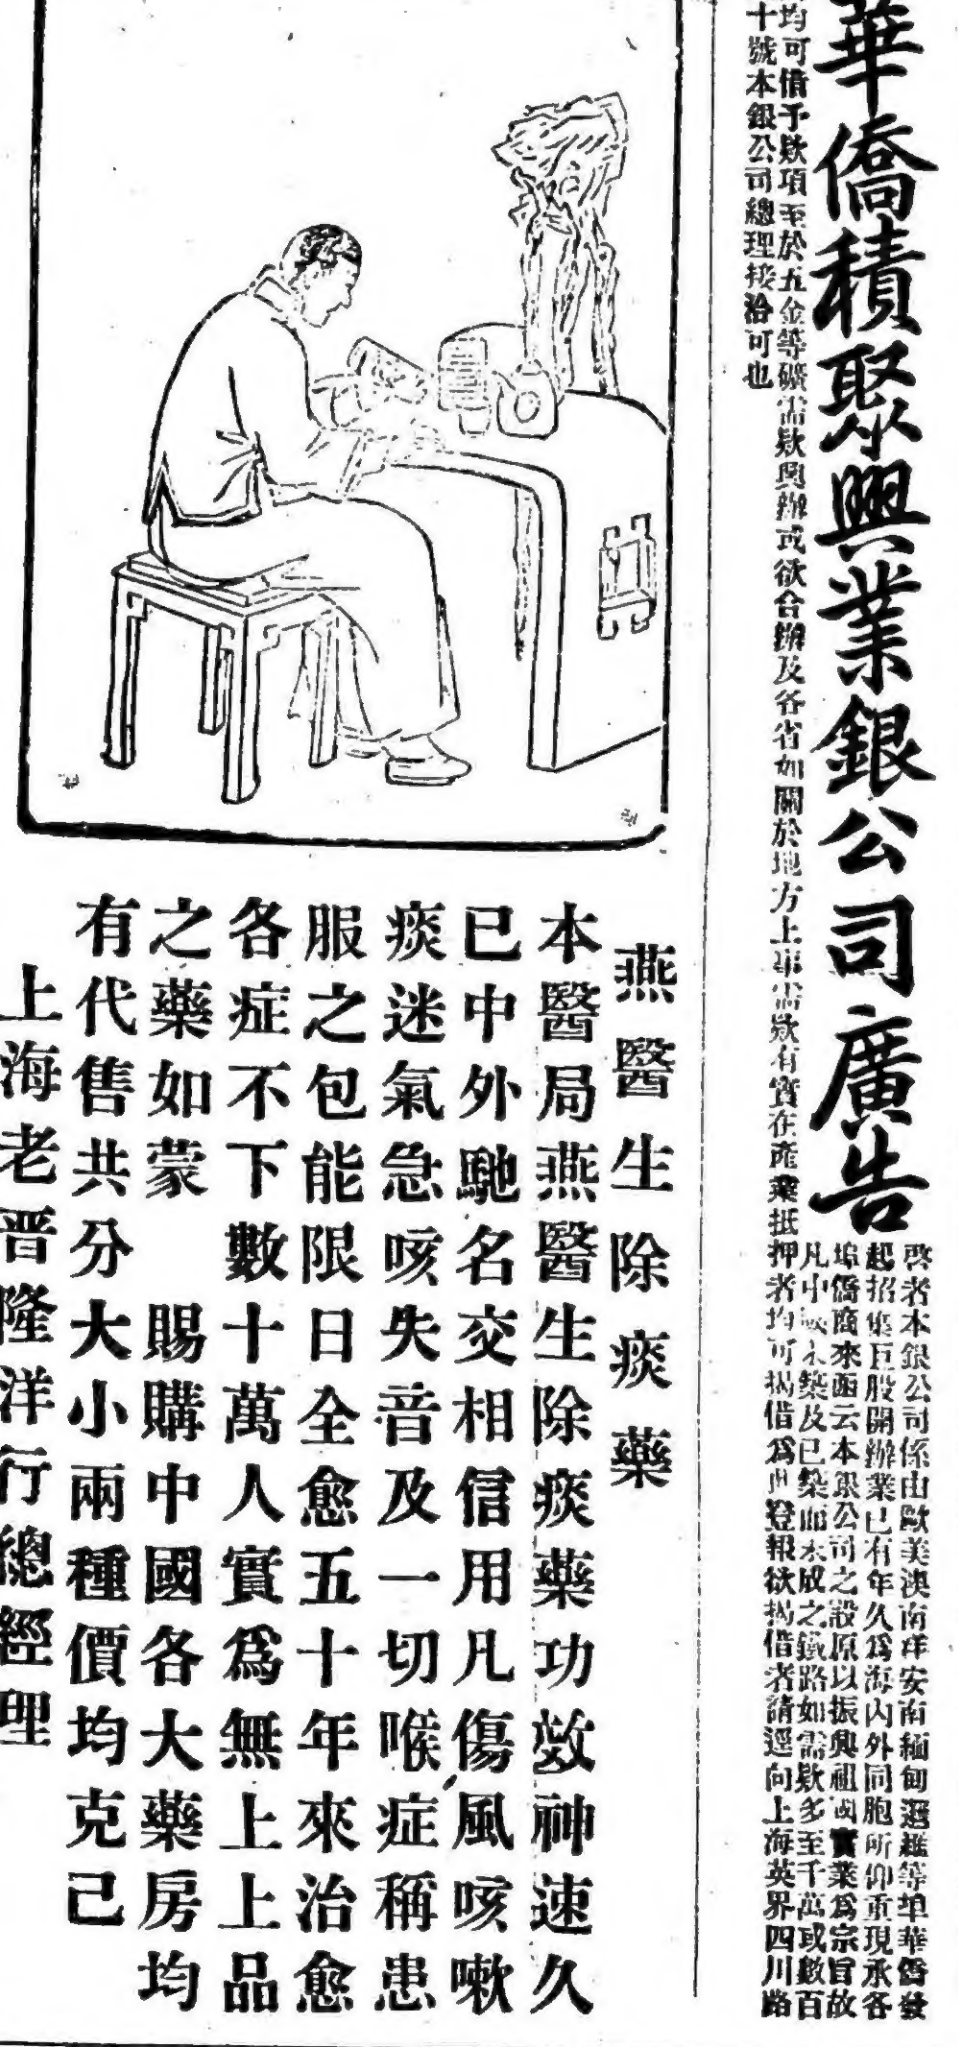 華僑積聚興業銀公司廣告
啓者本銀公司係由歐美澳南洋安南緬甸暹羅等埠華僑發
起招集巨股開辦業已有年久爲海內外同胞所仰重現承各
埠僑商來函云本銀公司之設原以振興祖國實業爲宗旨故
凡中國未築及已築而未成之鐵路如需欵多至千萬或數百
均可借予欵項至於五金等礦需欵興辦或欲合辦及各省如關於地方上事需欵有實在產業抵押者均可揭借爲此登報欲揭借者請逕向上海英界四川路
十號本銀公司總理接洽可也
燕醫生除痰藥
本醫局燕醫生除痰藥功效神速久
已中外馳名交相信用凡傷風咳嗽
痰迷氣急咳失音及一切喉症稱患
服之包能限日全愈五十年來治愈
各症不下數十萬人實爲無上上品
之藥如蒙 賜購中國各大藥房均
有代售共分大小兩種價均克己
上海老晋隆洋行總經理